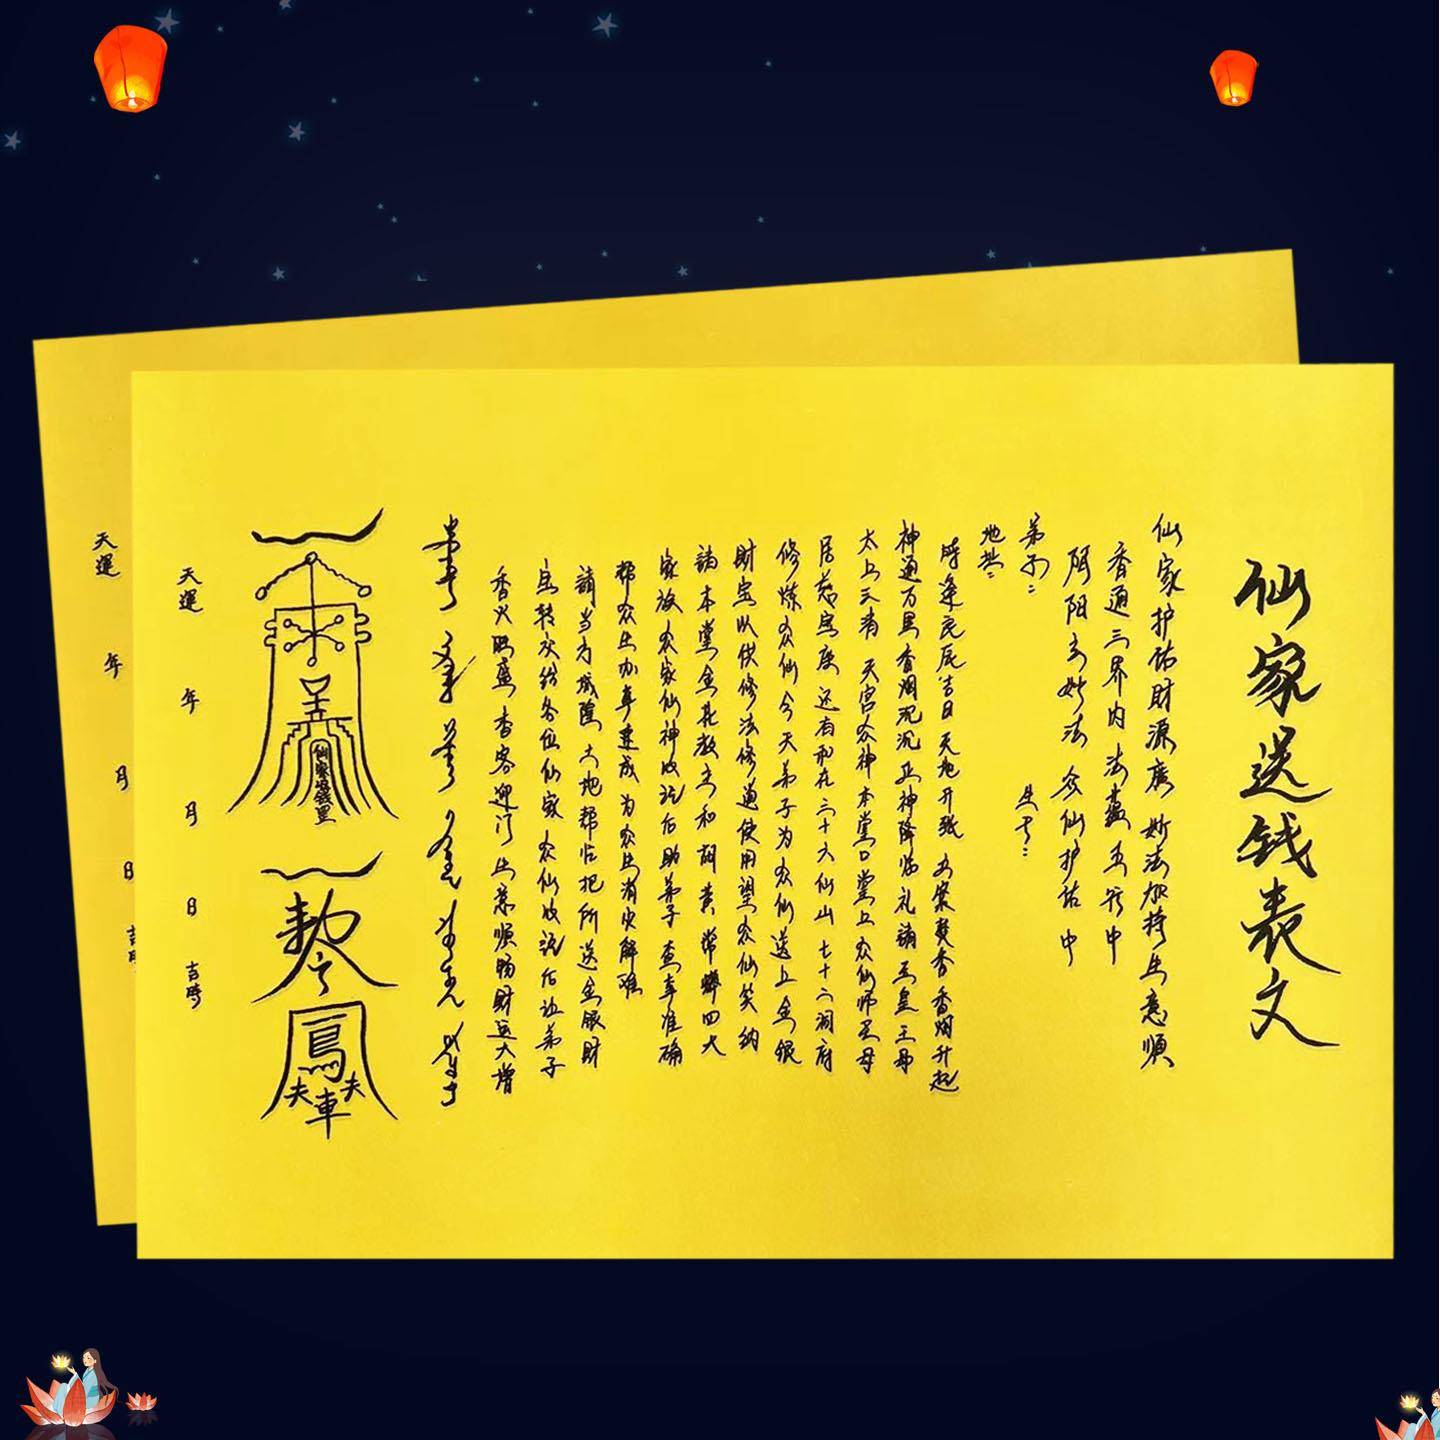 仙家送钱表文
仙家护佑财源广 妙法加持生意顺
香通三界内 法藏五行中
阴阳玄妙法 众仙护佑中
弟子： 生于：
地址：
时逢良辰吉日 天地开张 宝案焚香 香烟升起
神通万里 香烟沉沉 正神降临 礼请 玉皇 王母
太上三清 天宫众神 本堂口堂上众仙师 圣母
居慈宝度 还有那在三十六仙山 七十二洞府
修炼众仙 今天弟子为众仙送上金银
财宝以供修法修道使用 望众仙笑纳
请本堂金花教主和胡黄常蟒四大
家族众家仙神收讫后助弟子查事准确
帮众生办事速成 为众生消灾解难
请当方城隍土地帮忙把所送金银财
宝转交给各位仙家 众仙收讫后让弟子
香火旺盛 香客迎门 生意顺畅 财运大增
仙家送钱里
敕令
鳳
夫車夫
天運 年 月 日 吉時
天運 年 月 日 吉時